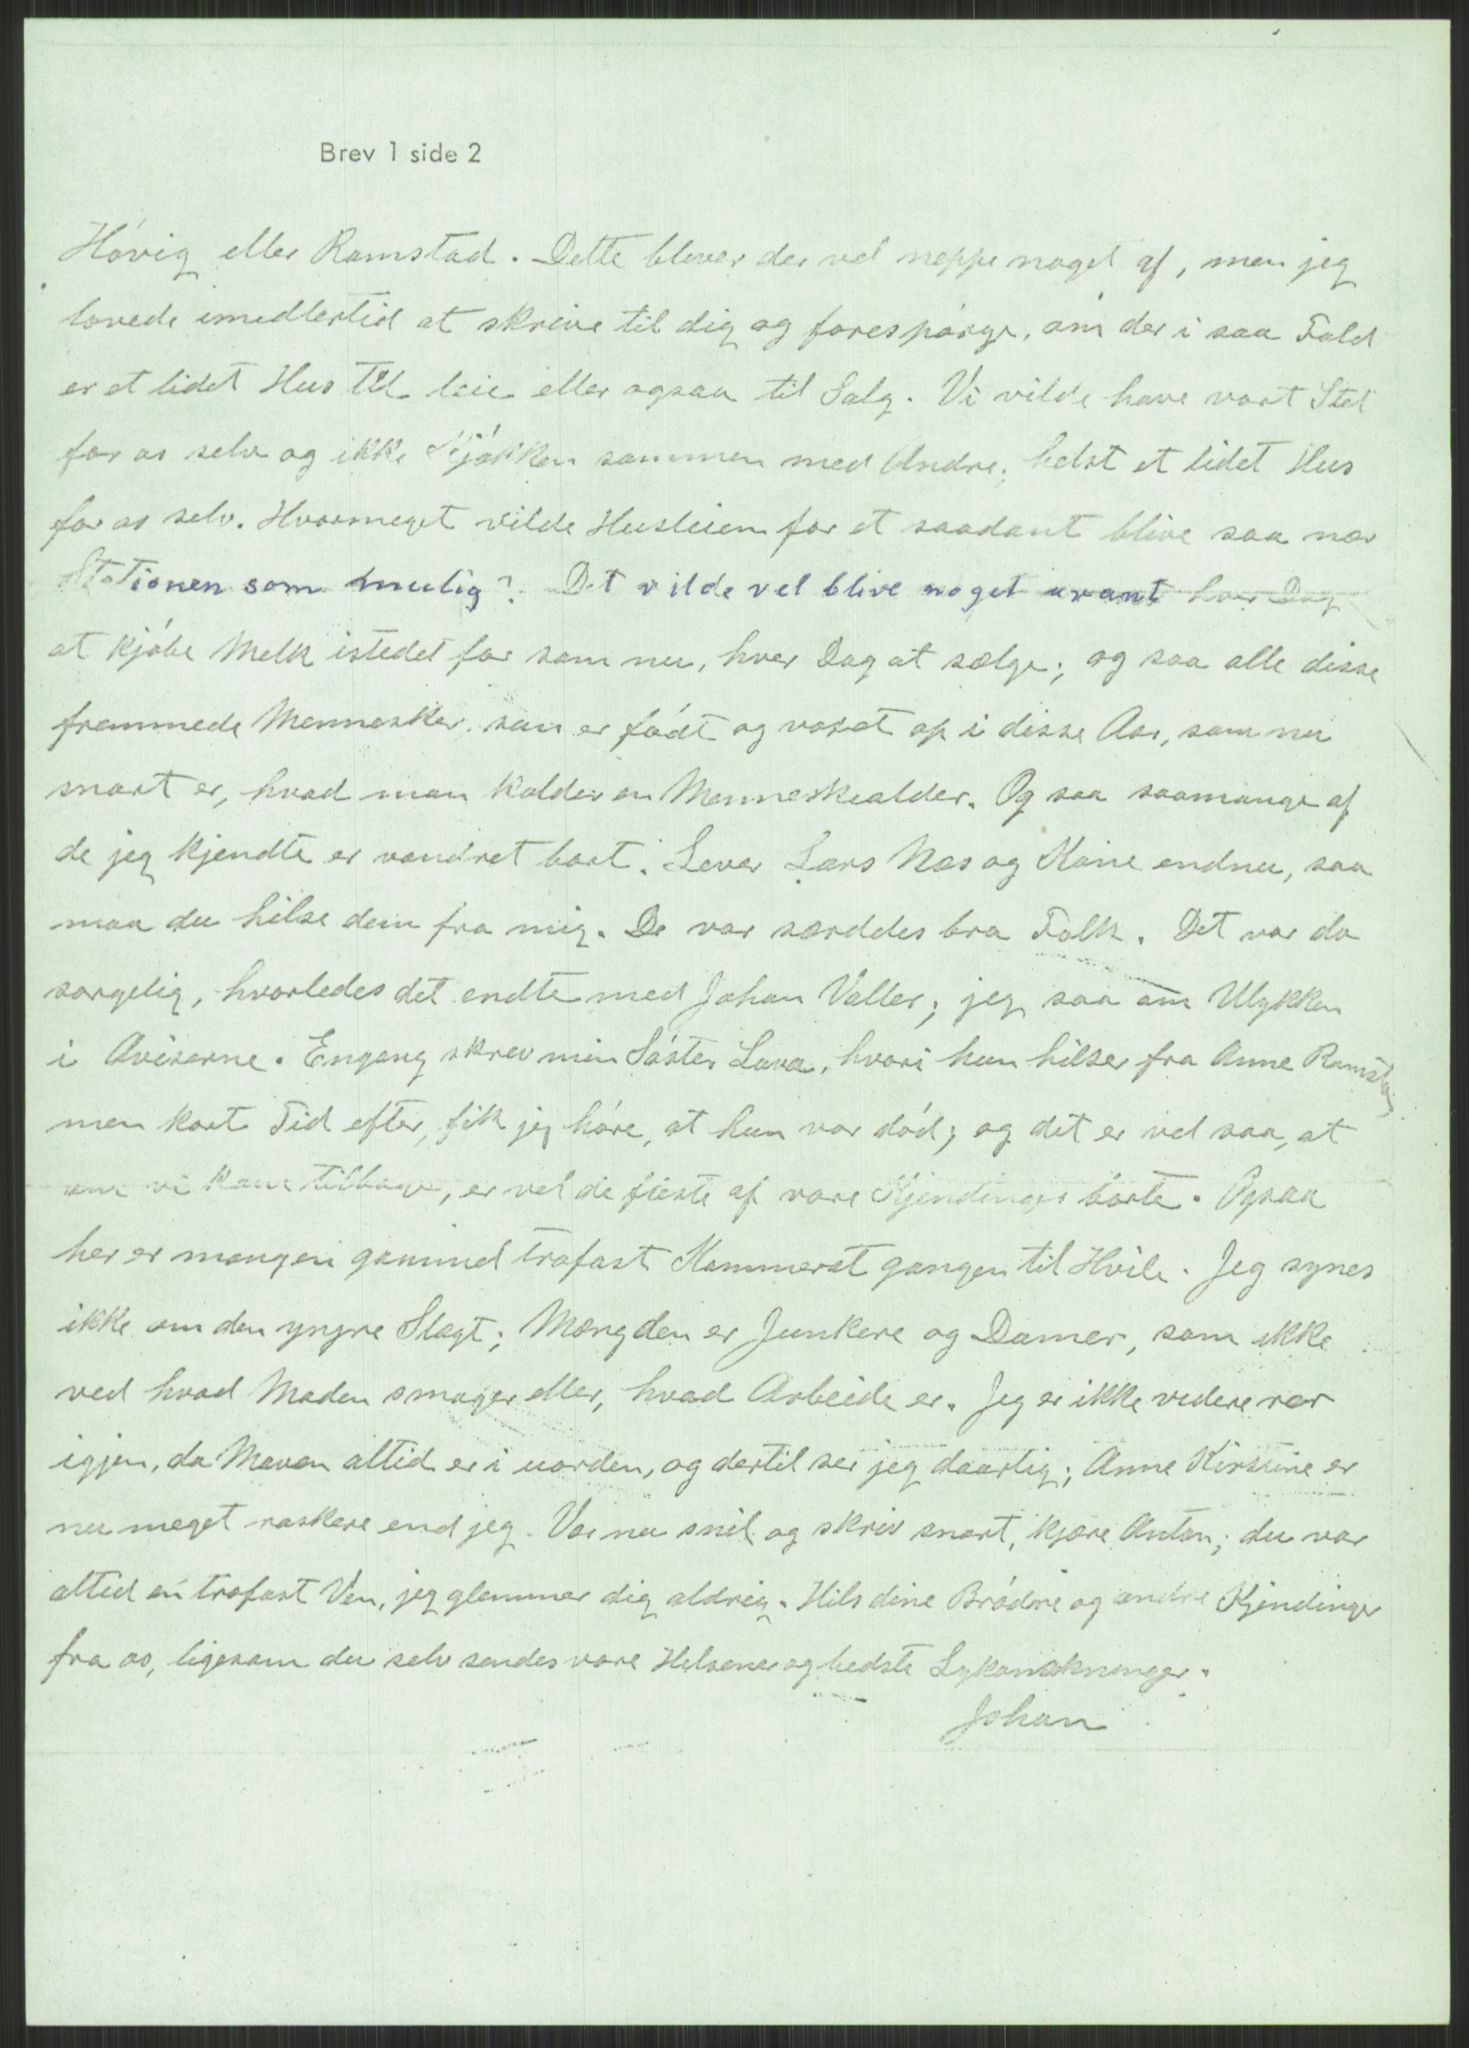 Brev 1 side 2
Hövig eller Ramstad. Dette bliver der vel neppe noget af, men jeg
lovede imidlertid at skrive til dig og forespörge, om der i saa Fald
er et lidet Hus til leie eller ogsaa til Salg. Vi vilde have vort Stel
for os selv og ikke Kjökken sammen med Andre; helst et lidet Hus
for os selv. Hvormeget vilde Husleien for et saadant blive saa nær
Stationen som mulig? Det vilde vel blive noget uvant hver Dag
at kjöbe Melk istedet for som nu, hver Dag at sælge; og saa alle disse
fremmede Mennesker, som er födt og voxet op i disse Aar, som nu
snart er, hvad man kalder en Menneskealder. Og saa saamange af
de jeg kjendte er vandret bort. Lever Lars Næs og Kone endnu, saa
maa du hilse dem fra mig. De var særdeles bra Folk. Det var da
sörgelig, hvorledes det endte med Johan Valler; jeg saa om Ulykken
i Aviserne. Engang skrev min Söster Lova, hvori hun hilser fra Anne Ramstad
men kort Tid efter, fik jeg höre, at hun var död; og det er vel saa, at
om vi kom tilbage, er vel de fleste af vore Kjendinger borte. Ogsaa
her er mangen gammel trofast Kammerat gangen til Hvile. Jeg synes
ikke om den yngre Slægt; Mængden er Junkere og Damer, som ikke
ved hvad Maden smager eller, hvad Arbeide er. Jeg er ikke videre rar
igjen, da Maven altid er i uorden, og dertil ser jeg daarlig; Anne Kirstine er
nu meget raskere end jeg. Vær nu snil og skriv snart, kjære Anton; du var
altid en trofast Ven, jeg glemmer dig aldrig. Hils dine Brödre og andre Kjendinger
fra os, ligesom du selv sendes vore Hilsener og bedste Lykönskninger.
Johan